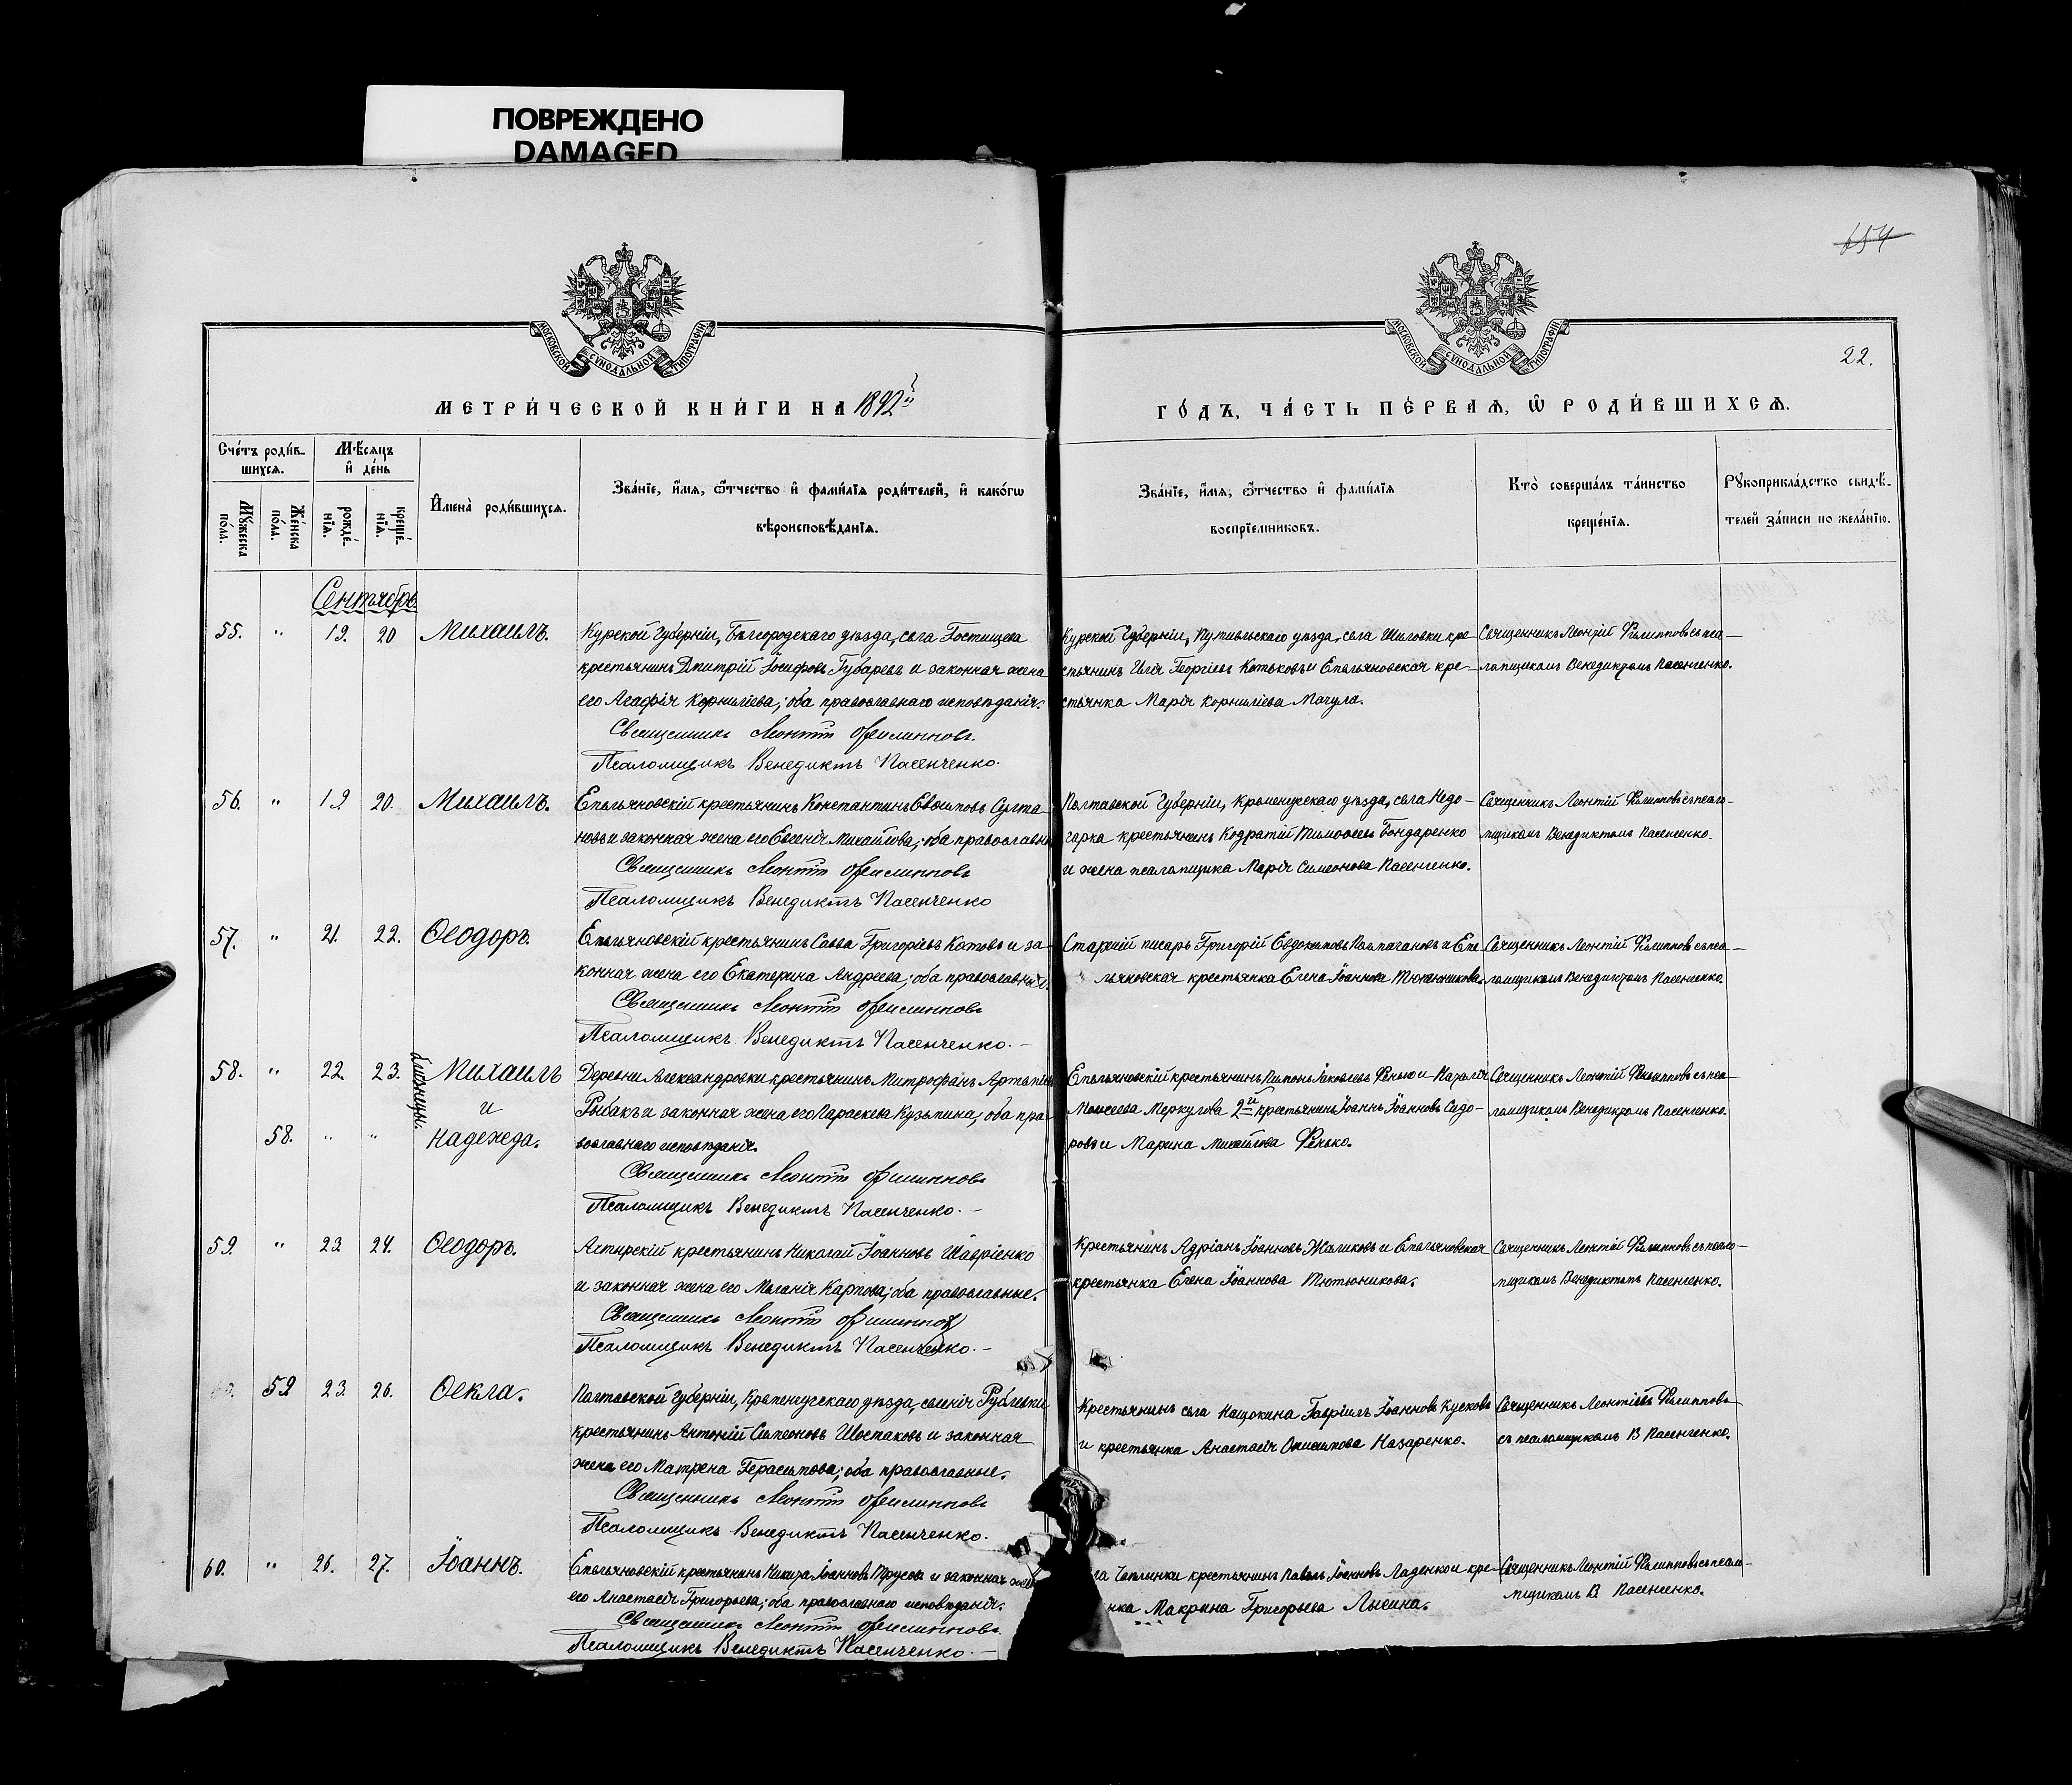 ПОВРЕЖДЕНО
DAMAGED
654
МОСКОВСКОЙ СѴНОДАЛЬНОЙ ТИПОГРАФІИ
МОСКОВСКОЙ СѴНОДАЛЬНОЙ ТИПОГРАФІИ
22.
МЕТРИ́ЧЕСКОЙ КНИ́ГИ НА 1892й
ГО́ДЪ, ЧА́СТЬ ПЕ́РВАѦ, Ѡ҆ РОДИ́ВШИХСѦ.
Сче́тъ роди́в-
шихсѧ.
Мꙋ́жеска по́ла.
Же́нска по́ла.
Мѣ́сѧцъ
и҆ де́нь
рожде́-
нїѧ.
креще́-
нїѧ.
И҆мена̀ роди́вшихсѧ.
Зва́нїе, и҆́мѧ, ѻ҆́тчество и҆ фами́лїѧ роди́телей, и҆ како́гѡ
вѣроисповѣ́данїѧ.
Зва́нїе, и҆́мѧ, ѻ҆́тчество и҆ фами́лїѧ
воспрїе́мниковъ.
Кто̀ соверша́лъ та́инство
креще́нїѧ.
Рꙋкоприкла́дство свидѣ́-
телей за́писи по жела́нїю.
Сентябрь
55. " 19. 20 Михаилъ.
Курской губерніи, Бѣлгородскаго уѣзда, села Гостищева
крестьянинъ Дмитрій Іосифовъ Губаревъ и законная жена
его Агафія Корниліева; оба православнаго исповѣданія.
Священникъ Леонтій Филипповъ.
Псаломщикъ Венедиктъ Пасенченко.
Курской губерніи, Путивльскаго уѣзда, села Шиловки кре-
стьянинъ Илія Георгіевъ Котьковъ и Емельяновская кре-
стьянка Марія Корниліева Могула.
Священникъ Леонтій Филипповъ съ пса-
ломщикомъ Венедиктомъ Пасенченко.
56. " 19 20. Михаилъ.
Емельяновскій крестьянинъ Константинъ Евѳимовъ Султа-
новъ и законная жена его Евгенія Михайлова; оба православны
Священникъ Леонтій Филипповъ
Псаломщикъ Венедиктъ Пасенченко
Полтавской губерніи, Кременчугскаго уѣзда, села Недо-
гарка крестьянинъ Кодратій Тимоѳеевъ Бондаренко
и жена псаломщика Марія Симеонова Пасенченко.
Священникъ Леонтій Филипповъ съ псало-
мщикомъ Венедиктомъ Пасенченко.
57. " 21. 22. Ѳеодоръ.
Емельяновскій крестьянинъ Савва Григорьевъ Котовъ и за-
конная жена его Екатерина Андреева; оба православные.
Священникъ Леонтій Филипповъ
Псаломщикъ Венедиктъ Пасенченко. -
Старшій писарь Григорій Евдокимовъ и Еме-
льяновская крестьянка Елена Іоаннова Тютюнникова.
Священникъ Леонтій Филипповъ съ пса-
ломщикомъ Венедиктомъ Пасенченко.
58. " 22. 23. близнецы. Михаилъ
и
58. " " Надежда.
Деревни Александровки крестьянинъ Митрофанъ Артемовъ
Рыбакъ и законная жена его Параскева Кузьмина; оба пра-
вославнаго исповѣданія.
Священникъ Леонтій Филипповъ
Псаломщикъ Венедиктъ Пасенченко. -
Емельяновскій крестьянинъ Яковлевъ Фенько и Наталія
Моисеева Меркулова 2й крестьянинъ Іоаннъ Іоанновъ Сидо-
ровъ и Марина Михайлова Фенько.
Священникъ Леонтій Филипповъ съ пса-
ломщикомъ Венедиктомъ Пасенченко.
59. " 23 24. Ѳеодоръ.
Ахтырскій крестьянинъ Николай Іоанновъ Шавріенко
и законная жена его Меланія Карпова; оба православные.
Священникъ Леонтій Филипповъ
Псаломщикъ Венедиктъ Пасенченко. -
Крестьянинъ Адріанъ Іоанновъ Жаликовъ и Емельяновская
крестьянка Елена Іоаннова Тютюникова.
Священникъ Леонтій Филипповъ съ псало-
мщикомъ Венедиктомъ Пасенченко.
59 23. 26. Ѳекла.
Полтавской губерніи, Кременчугскаго уѣзда, селенія Рублевки
крестьянинъ Антоній Симеоновъ Шостаковъ и законная
жена его Матрена Герасимова; оба православные.
Священникъ Леонтій Филипповъ
Псаломщикъ Венедиктъ Пасенченко.
Крестьянинъ села Нащокина Гавріилъ Іоанновъ Кусковъ
и крестьянка Анастасія Онисимова Назаренко.
Священникъ Леонтій Филипповъ
съ псаломщикомъ В Пасенченко.
60. " 26. 27. Іоаннъ.
Емельяновскій крестьянинъ Никита Іоанновъ Трусовъ и законная жена
его Анастасія Григорьева; оба православнаго исповѣданія.
Священникъ Леонтій Филипповъ
Псаломщикъ Венедиктъ Пасенченко. -
ла Чаплинки крестьянинъ Павелъ Іоанновъ Ладенко и кре-
нка Макрина Григорьева Лысина.
Священникъ Леонтій Филипповъ съ псало-
мщикомъ В Пасенченко.